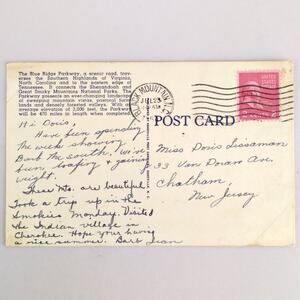 The Blue Ridge Parkway, a scenic road, traverses
the Southern Highlands of Virginia,
North Carolina and to the eastern edge of
Tennessee. It connects the Shenandoah and
Great Smoky Mountains National Parks. The
Parkway presents an ever-changing landscape
of sweeping mountain views, pastoral farm
lands and densely forested valleys. With an
average elevation of 3,000 feet, the Parkway
will be 470 miles in length when completed.
Hi Doris,
Have been spending
the week showing
Barb the south. We've
been loafing & gaining
weight.
These Mts. are beautiful
Took a trip up in the
Smokies Monday. Visited
the Indian village in
Cherokee. Hope your having
a nice summer. Barb Jean
BLACK MOUNTAIN
JUL 23
AM
POST CARD
Miss Doris Sissaman
33 Van Doran Ave.
Chatham,
New Jersey